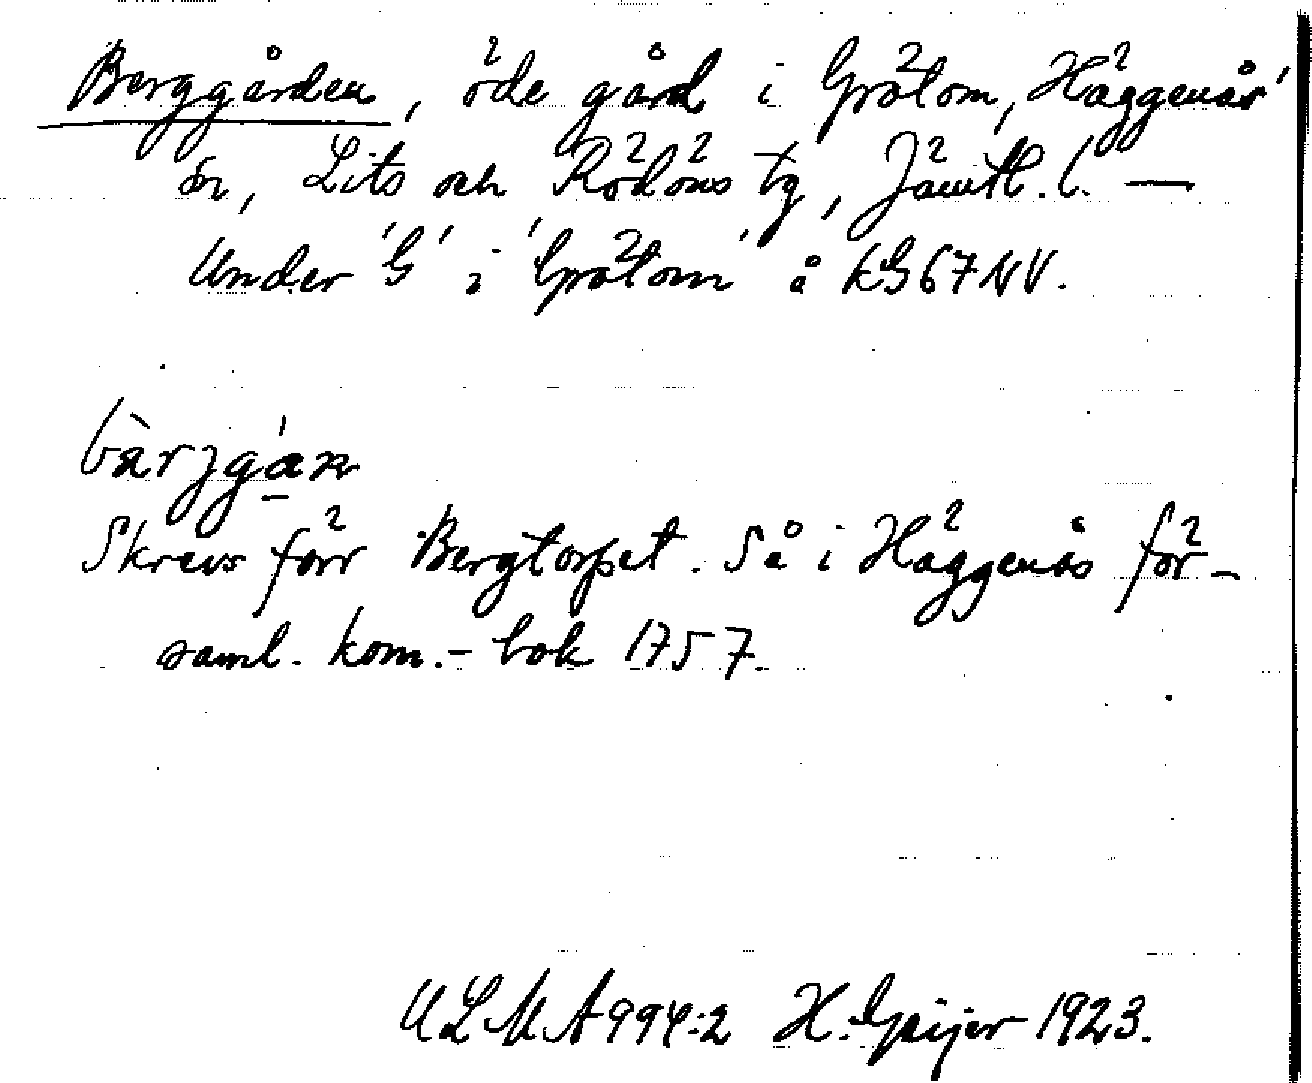 Berggården, öde gård i Grötom, Häggenås'
sn, Lits och Rödöns tg, Jämtl. l. —
Under 'G' i 'Grötom' å kG67NV.
bàrjgá̱n
Skrevs förr Bergtorpet. Så i Häggenås för-
saml. kom.-bok 1757.
ULMA 994:2 H. Geijer 1923.